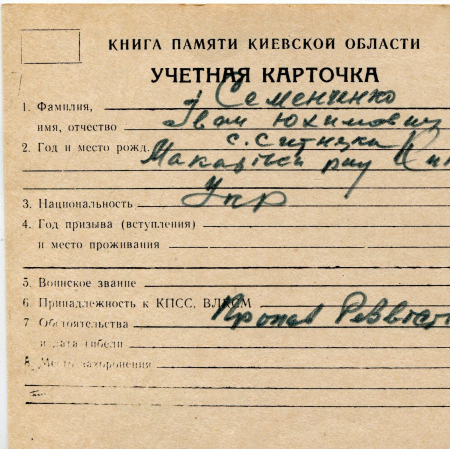 КНИГА ПАМЯТИ КИЕВСКОЙ ОБЛАСТИ
УЧЕТНАЯ КАРТОЧКА
1. Фамилия, Семенченко
имя, отчество Іван Юхимович
2. Год и место рожд. с. Ситняки
Макарівськ
3. Национальность Укр
4. Год призыва (вступления)
и место проживания
5. Воинское звание
6. Принадлежность к КПСС, ВЛКСМ
7. Обстоятельства Пропав
и дата гибели
8. Место захоронения